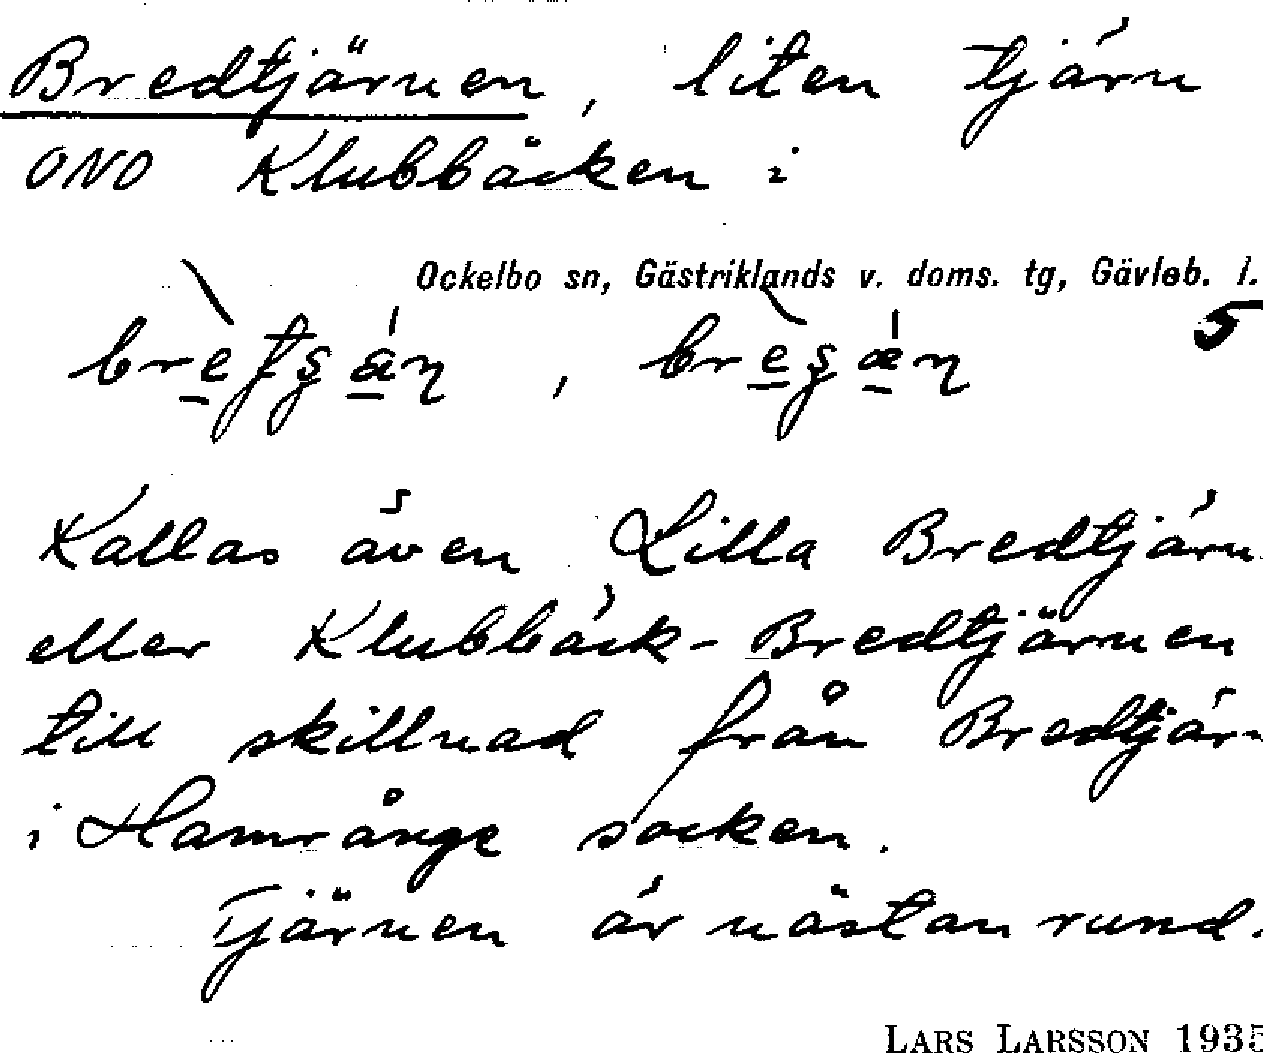 Bredtjärnen, liten tjärn
ONO Klubbäcken i
Ockelbo sn, Gästriklands v. doms. tg, Gävleb. l.
5
Kallas även Lilla Bredtjärn
eller Klubbäck-Bredtjärnen
till skillnad från Bredtjär-
i Hamrånge socken.
Tjärnen är nästan rund.
LARS LARSSON 1935